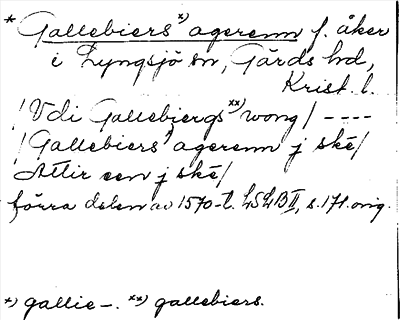 * Gallebiers*) agerenn f. åker
i Lyngsjö sn, Gärds hd,
Krist. l.
/Vdi Gallebjergs**) wong/ ----
/Gallebiers*) agerenn j skè/
Attir een j skè/
förra delen av 1570-t. LSLB II, s. 171. orig.
*) gallie-. **) gallebiers.